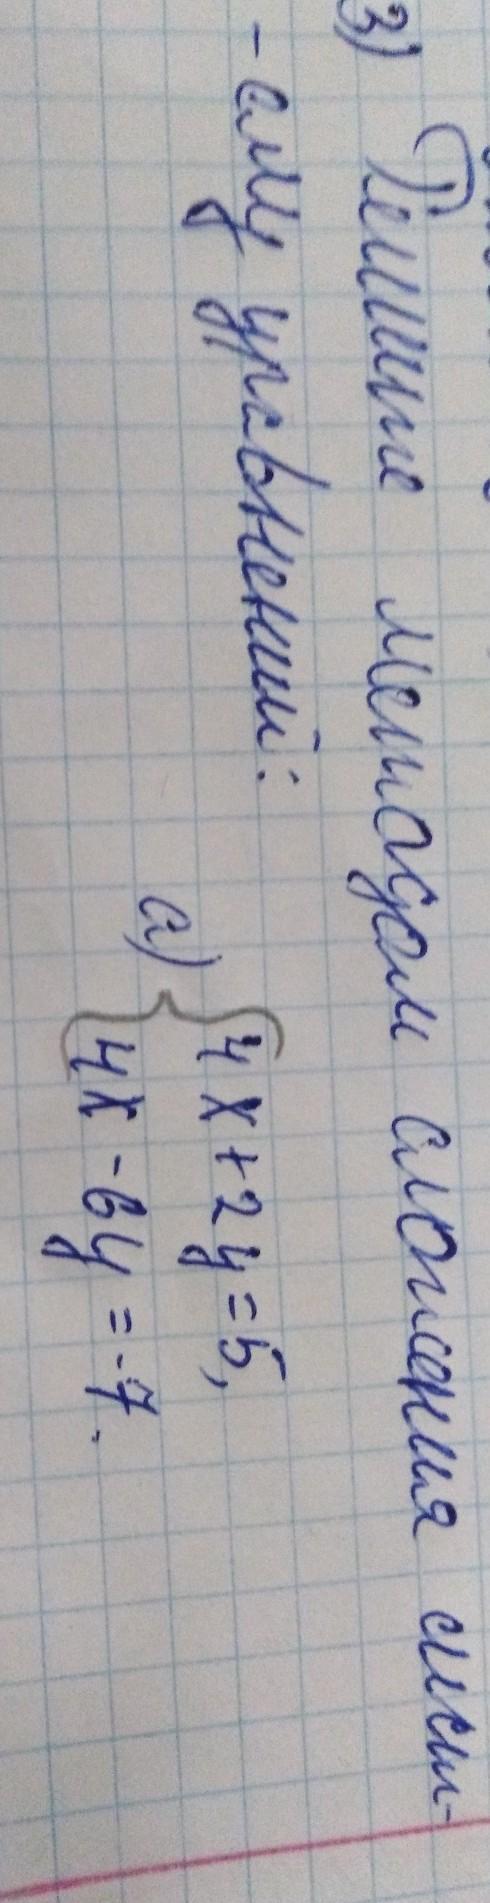 3) Решите методом сложения сист-
-ему уравнений:
а) { 4x + 2y = 5,
4x - 6y = -7.